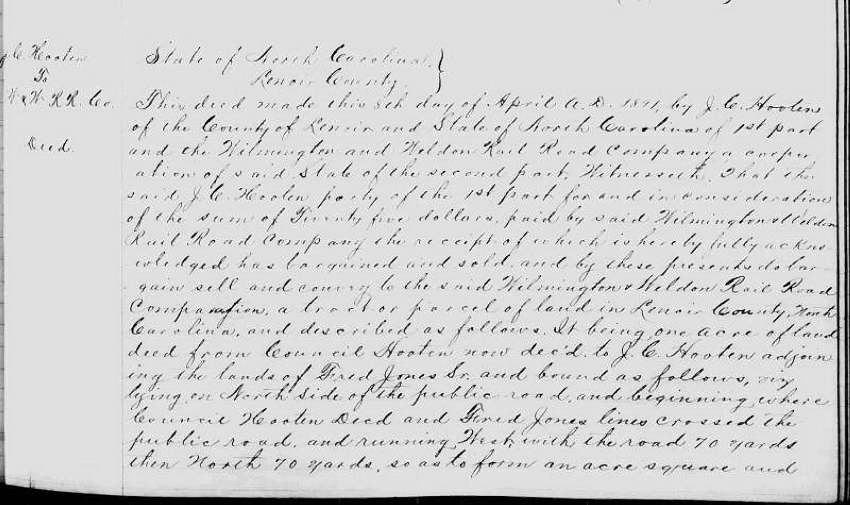 J. C. Hooten
To
W & W R.R. Co.
Deed.
State of North Carolina,
Lenoir County.
This deed made this 8th day of April A.D. 1891, by J. C. Hooten
of the County of Lenoir and State of North Carolina of 1st part
and the Wilmington and Weldon Rail Road Company a corpor
ation of said State of the second part, Witnesseth, That the
said J. C. Hooten party of the 1st part for and in consideration
of the sum of Twenty five dollars, paid by said Wilmington & Weldon
Rail Road Company the receipt of which is hereby fully ackno
wledged has bargained and sold, and by these presents do bar
gain sell and convey to the said Wilmington & Weldon Rail Road
Corporation, a tract or parcel of land in Lenoir County, North
Carolina, and described as follows. It being one acre of land
deed from Council Hooten now dec'd. to J. C. Hooten adjoin
ing the lands of Fred Jones Sr. and bound as follows, viz
lying on North side of the public road, and beginning, where
Council Hooten Decd and Fred Jones lines crossed the
public road, and running West, with the road 70 yards
then North 70 yards, so as to form an acre square and